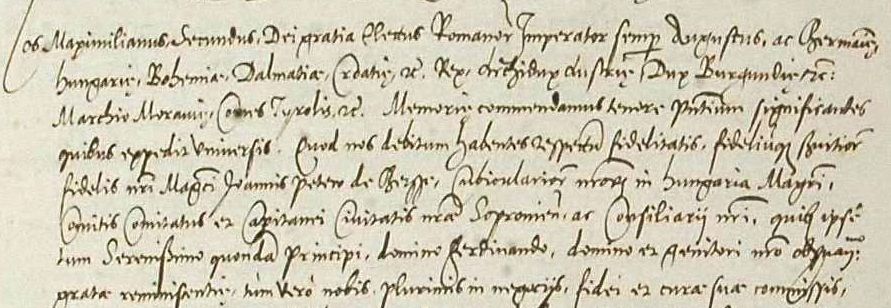 os Maximilianus, Secundus, Dei gratia Electus Romanor Imperator semp Augustus, ac Germanię,
Hungarię, Bohemiæ, Dalmatiæ, Croatię, &c. Rex, Archidux Austrię, Dux Burgundię &c:
Marchio Moravię, Comes Tyrolis, &c. Memorię commendamus tenore pntium significantes
quibus expedit Universis. Quod nos debitum habentes respectum fidelitatis, fideliumq servitior
fidelis nri Magci Joannis Petew de Gersse, Cubicularior nrorum in Hungaria Magri,
Comitis Comitatus et Capitanei Civitatis nræ Soproniens, ac Consiliarij nri, quibus ipse
tum Serenissimo quondā Principi, domino Ferdinando, domino et genitori nro
gratæ reminiscentię, tùm verò nobis, plurimis in negocijs, fidei et curæ suæ commissis,